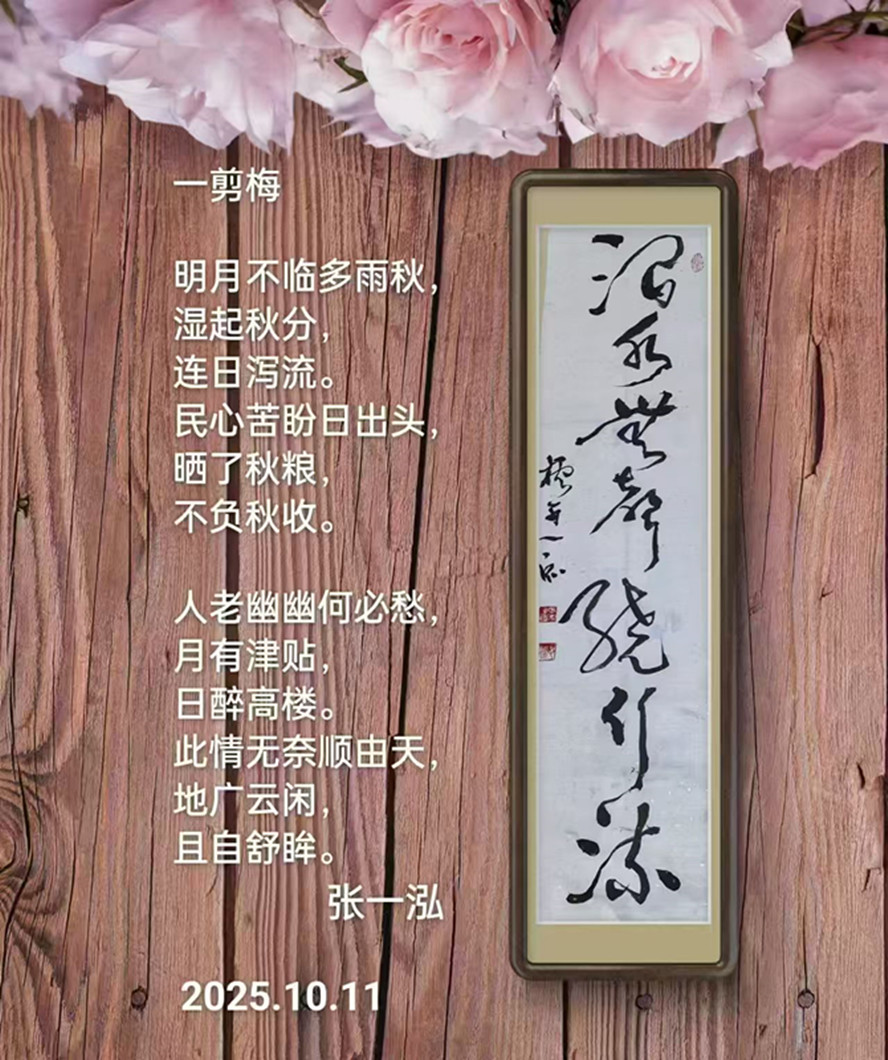 一剪梅
明月不临多雨秋，
湿起秋分，
连日泻流。
民心苦盼日出头，
晒了秋粮，
不负秋收。
人老幽幽何必愁，
月有津贴，
日醉高楼。
此情无奈顺由天，
地广云闲，
且自舒眸。
张一泓
2025.10.11
澗水無聲繞竹流